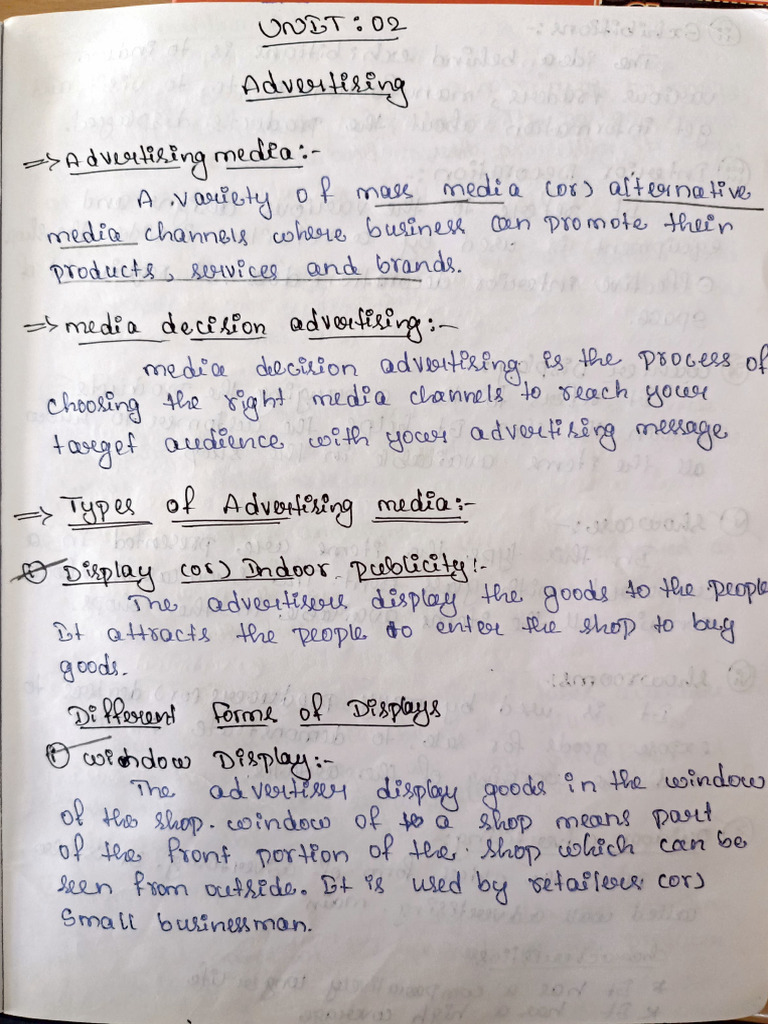 UNIT : 02
Advertising
=> Advertising media:-
A variety of mass media (or) alternative
media channels where business can promote their
products, services and brands.
=> media decision advertising:-
media decision advertising is the process of
choosing the right media channels to reach your
target audience with your advertising message
=> Types of Advertising media:-
① Display (or) Indoor publicity:-
The advertisers display the goods to the people
It attracts the people to enter the shop to buy
goods.
Different Forms of Displays
① window Display:-
The advertiser display goods in the window
of the shop. window of to a shop means part
of the front portion of the shop which can be
seen from outside. It is used by retailers (or)
Small businessman.